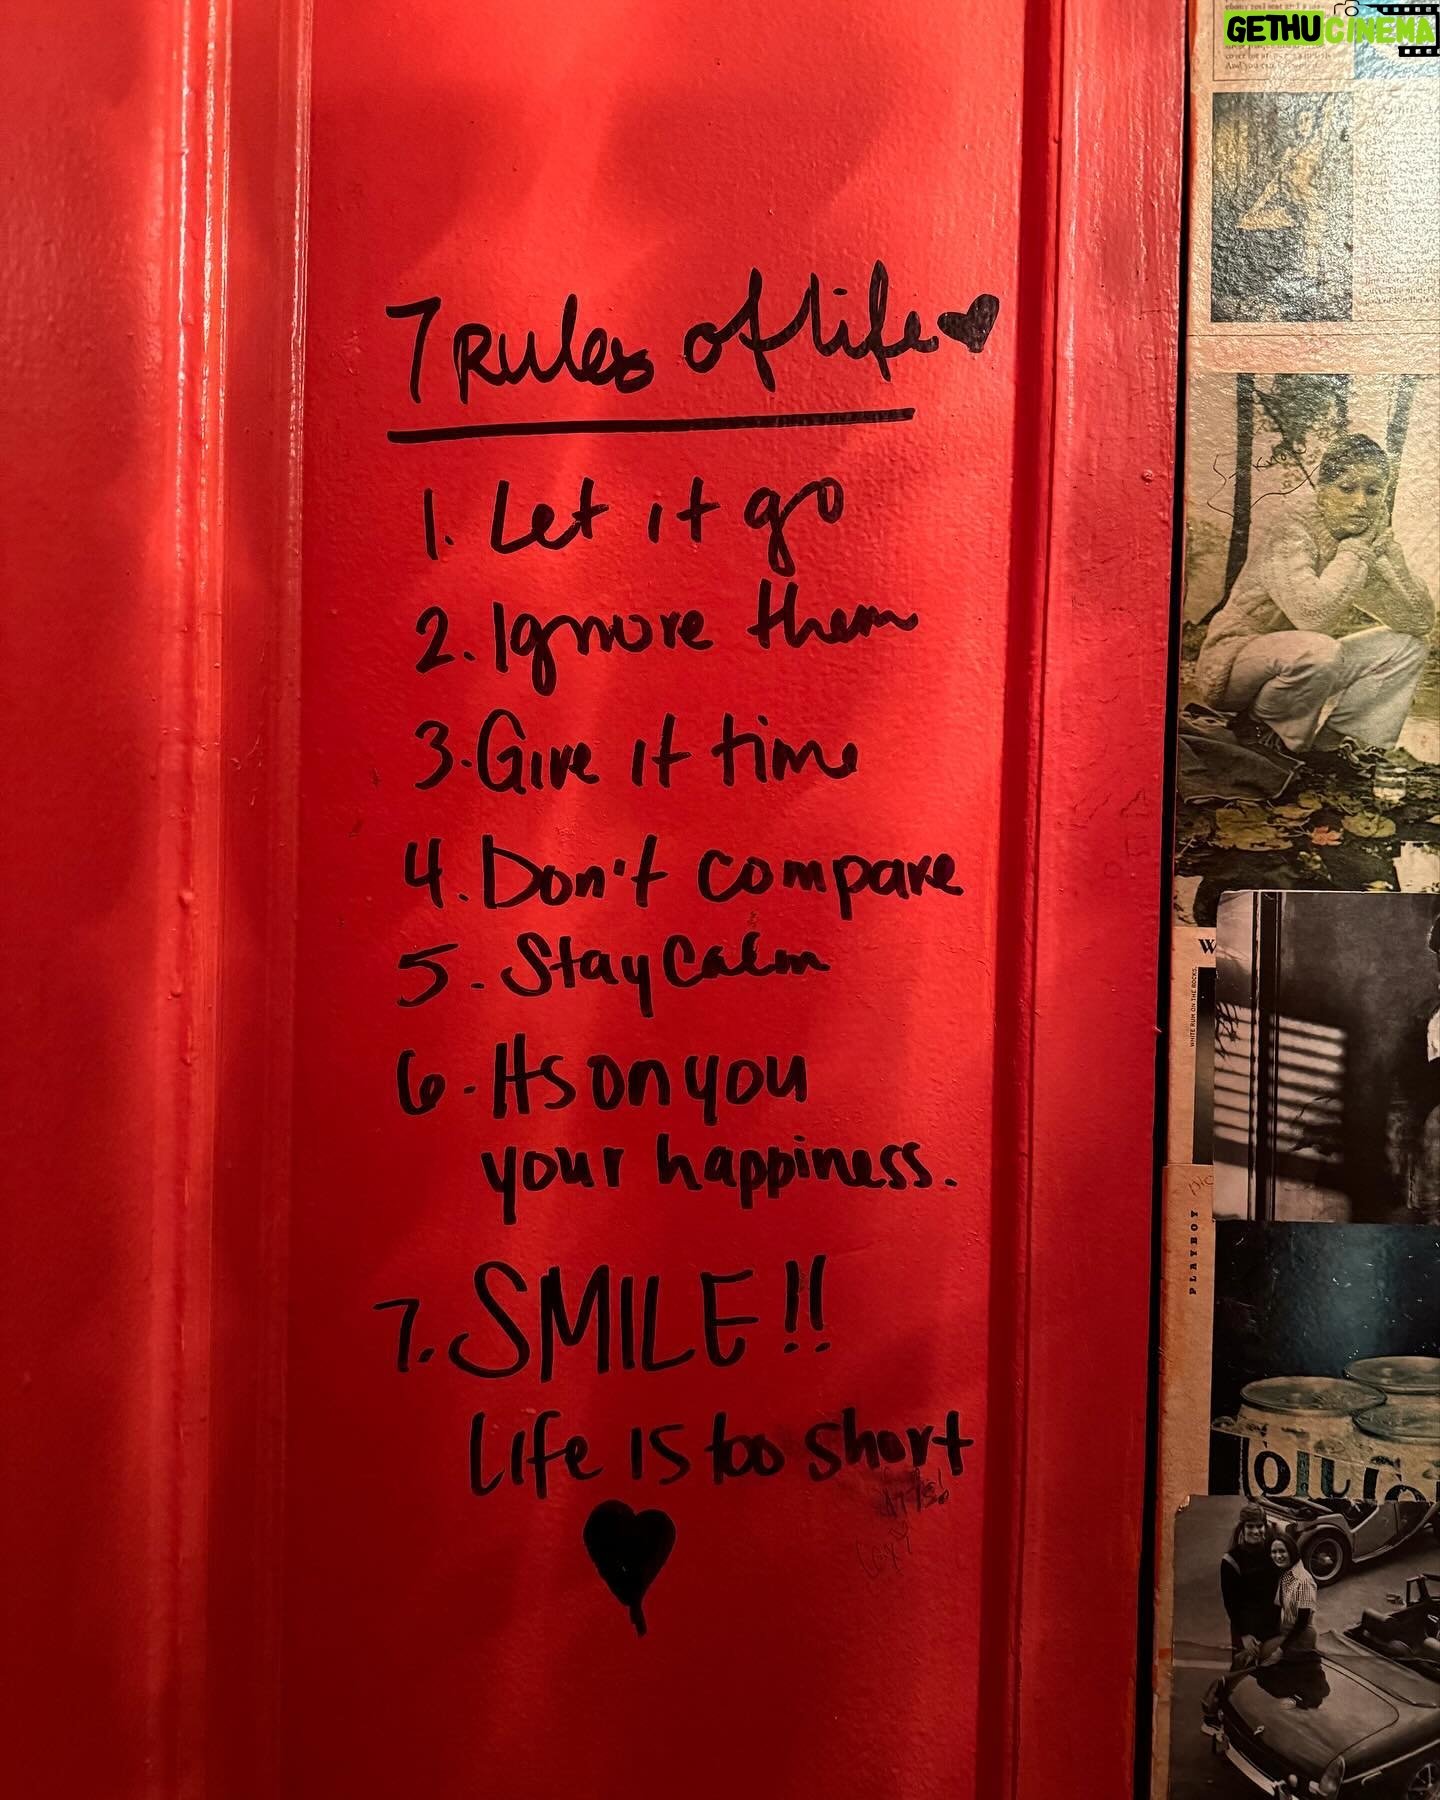 GETHUCINEMA
7 Rules of life
1. Let it go
2. Ignore them
3. Give it time
4. Don't compare
5. Stay Calm
6. Its on you
your happiness.
7. SMILE!!
Life is too short
W
WHITE RUM ON THE ROCKS.
PLAYBOY